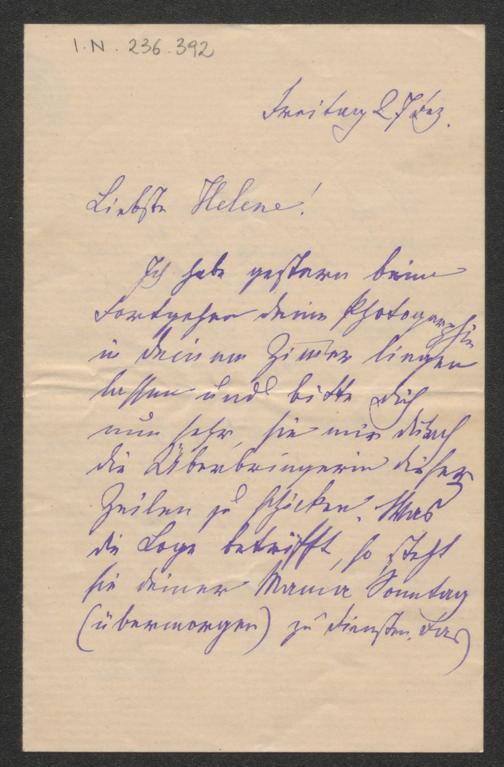 I. N. 236.392
Freitag 27 Dez.
Liebste Helene!
Ich habe gestern beim
Fortgehen deine Photographie
in deinem Zimmer liegen
lassen und bitte Dich
nun sehr, sie mir durch
die Überbringerin dieser
Zeilen zu schicken. Was
die Loge betrifft, so steht
sie deiner Mama Sonntag
(übermorgen) zu Diensten. Das